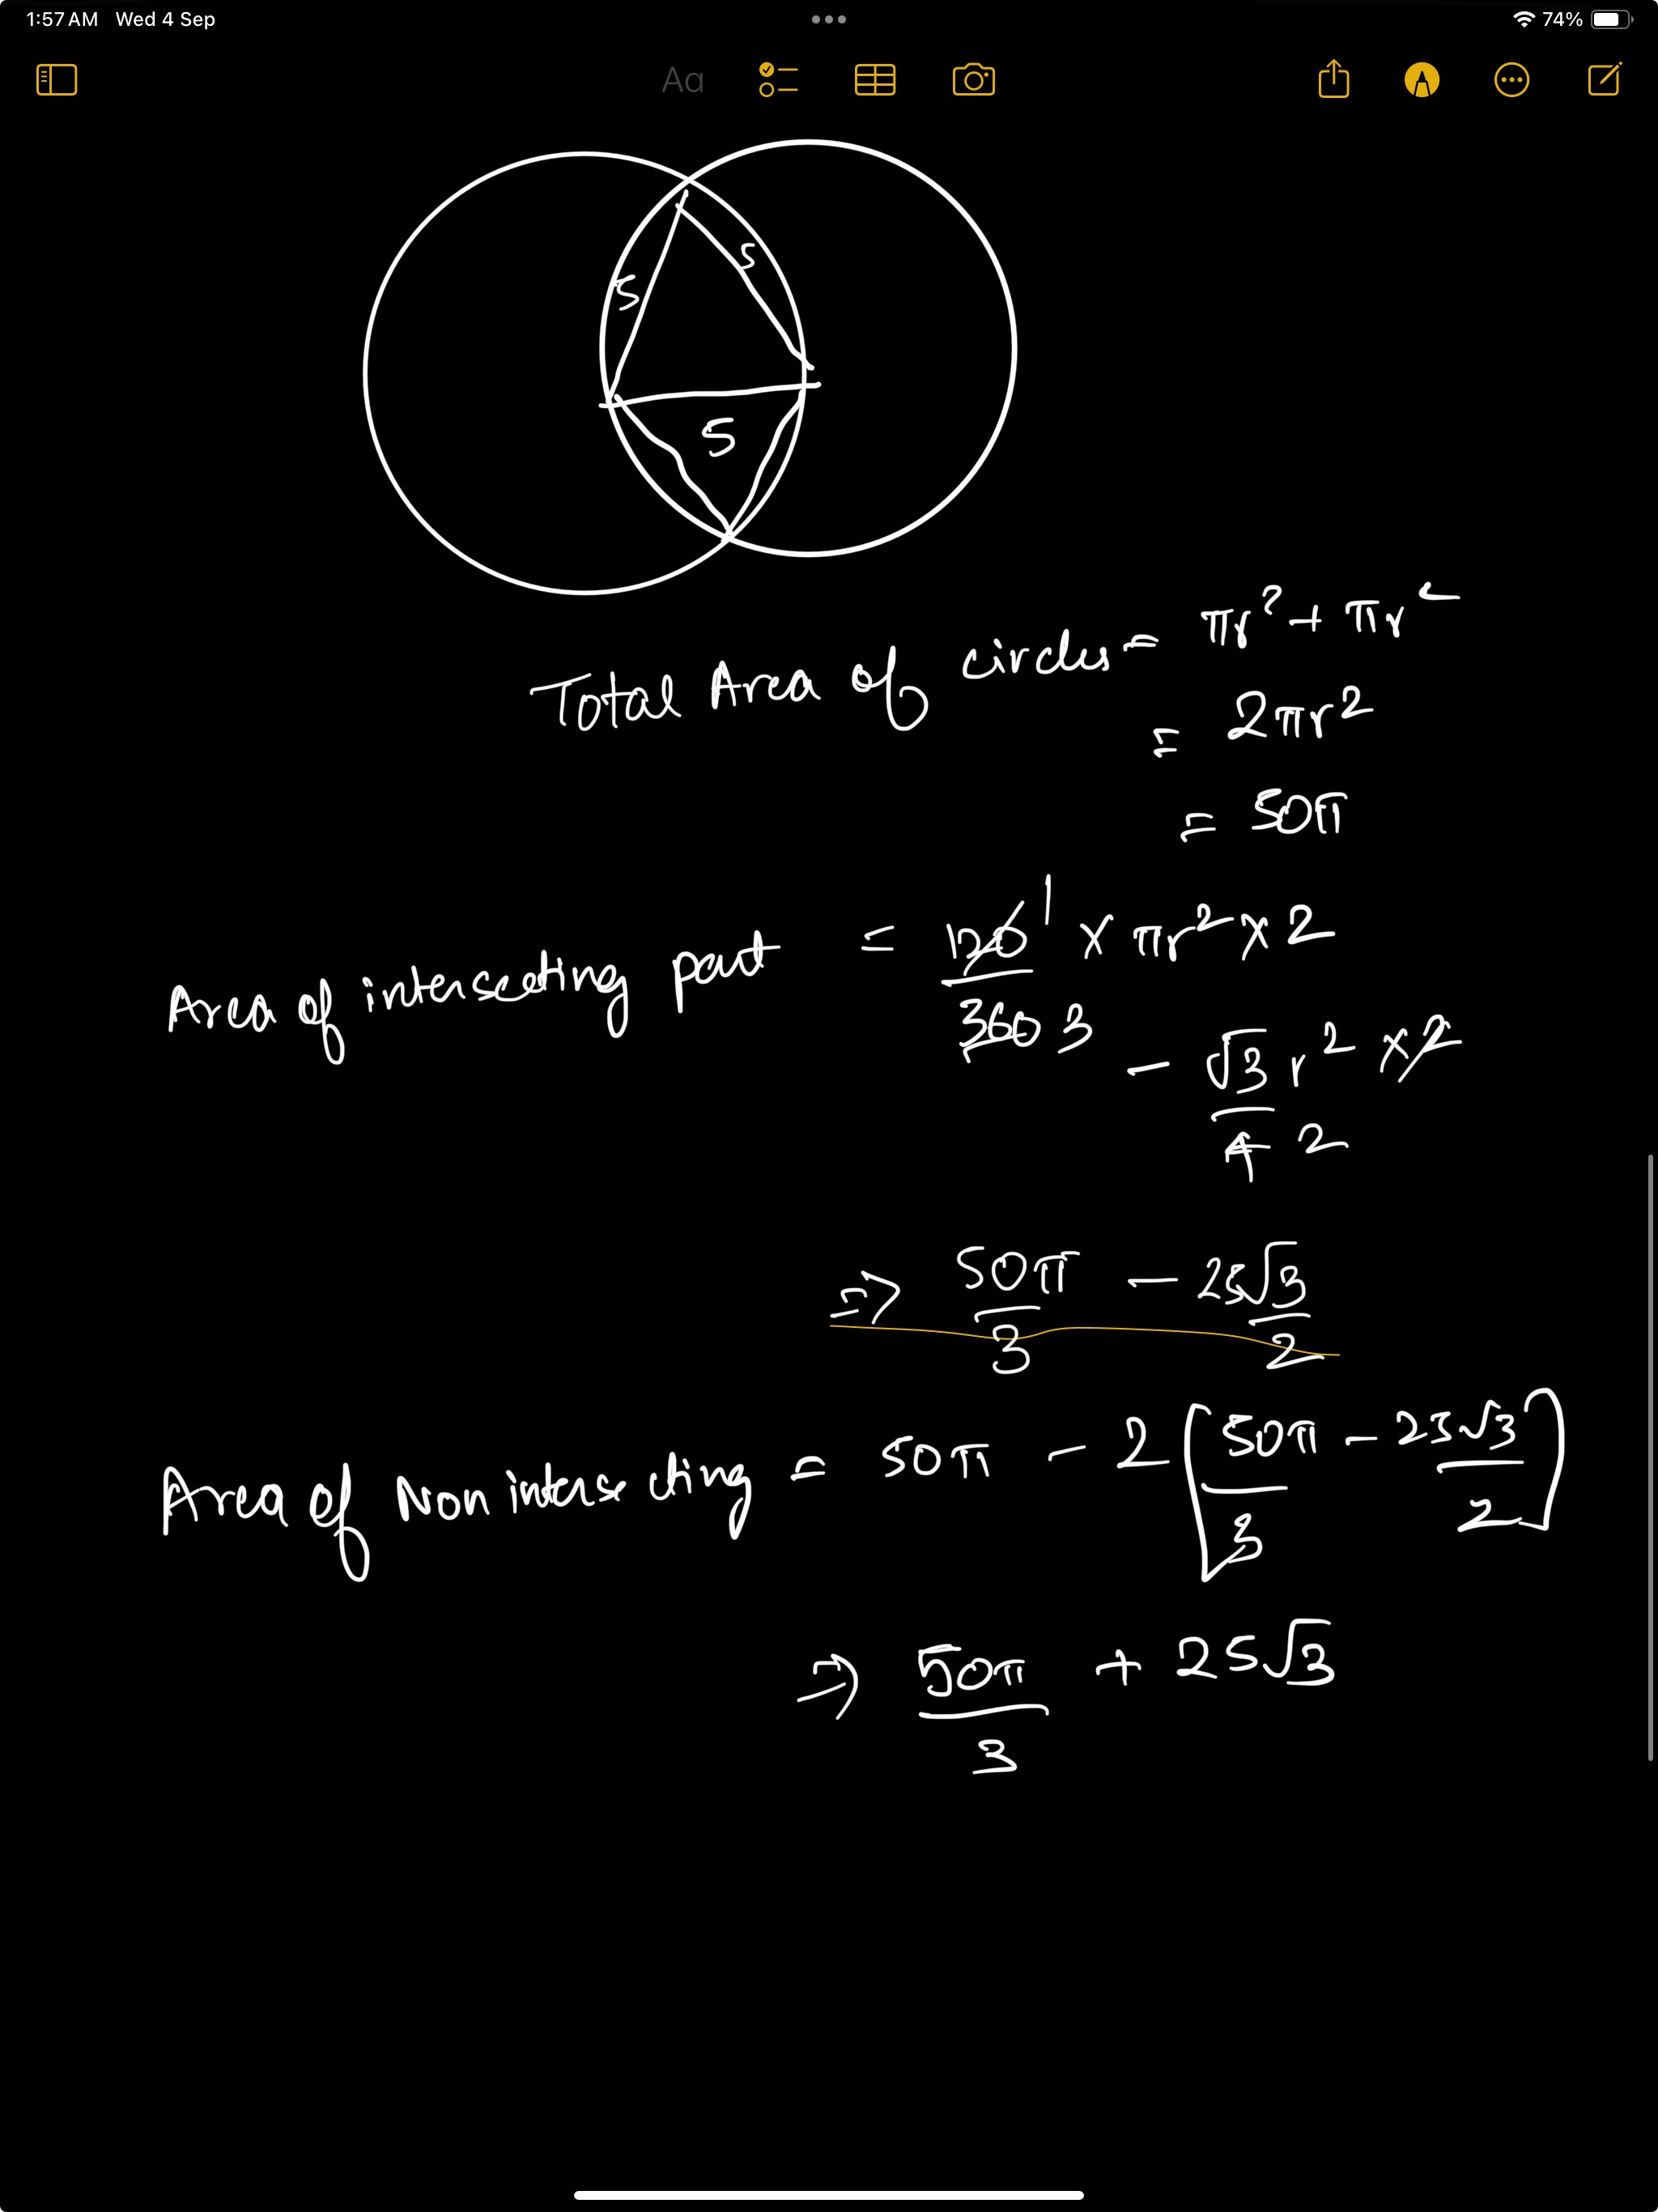 1:57 AM Wed 4 Sep
74%
Aa
5
5
5
Total Area of circles = πr² + πr²
= 2πr²
= 50π
Area of intersecting part = 120/360 1/3 × πr² × 2
- √3/4 r² × 2 2
⇒ 50π/3 - 25√3/2
Area of Non intersecting = 50π - 2[50π/3 - 25√3/2]
⇒ 50π/3 + 25√3